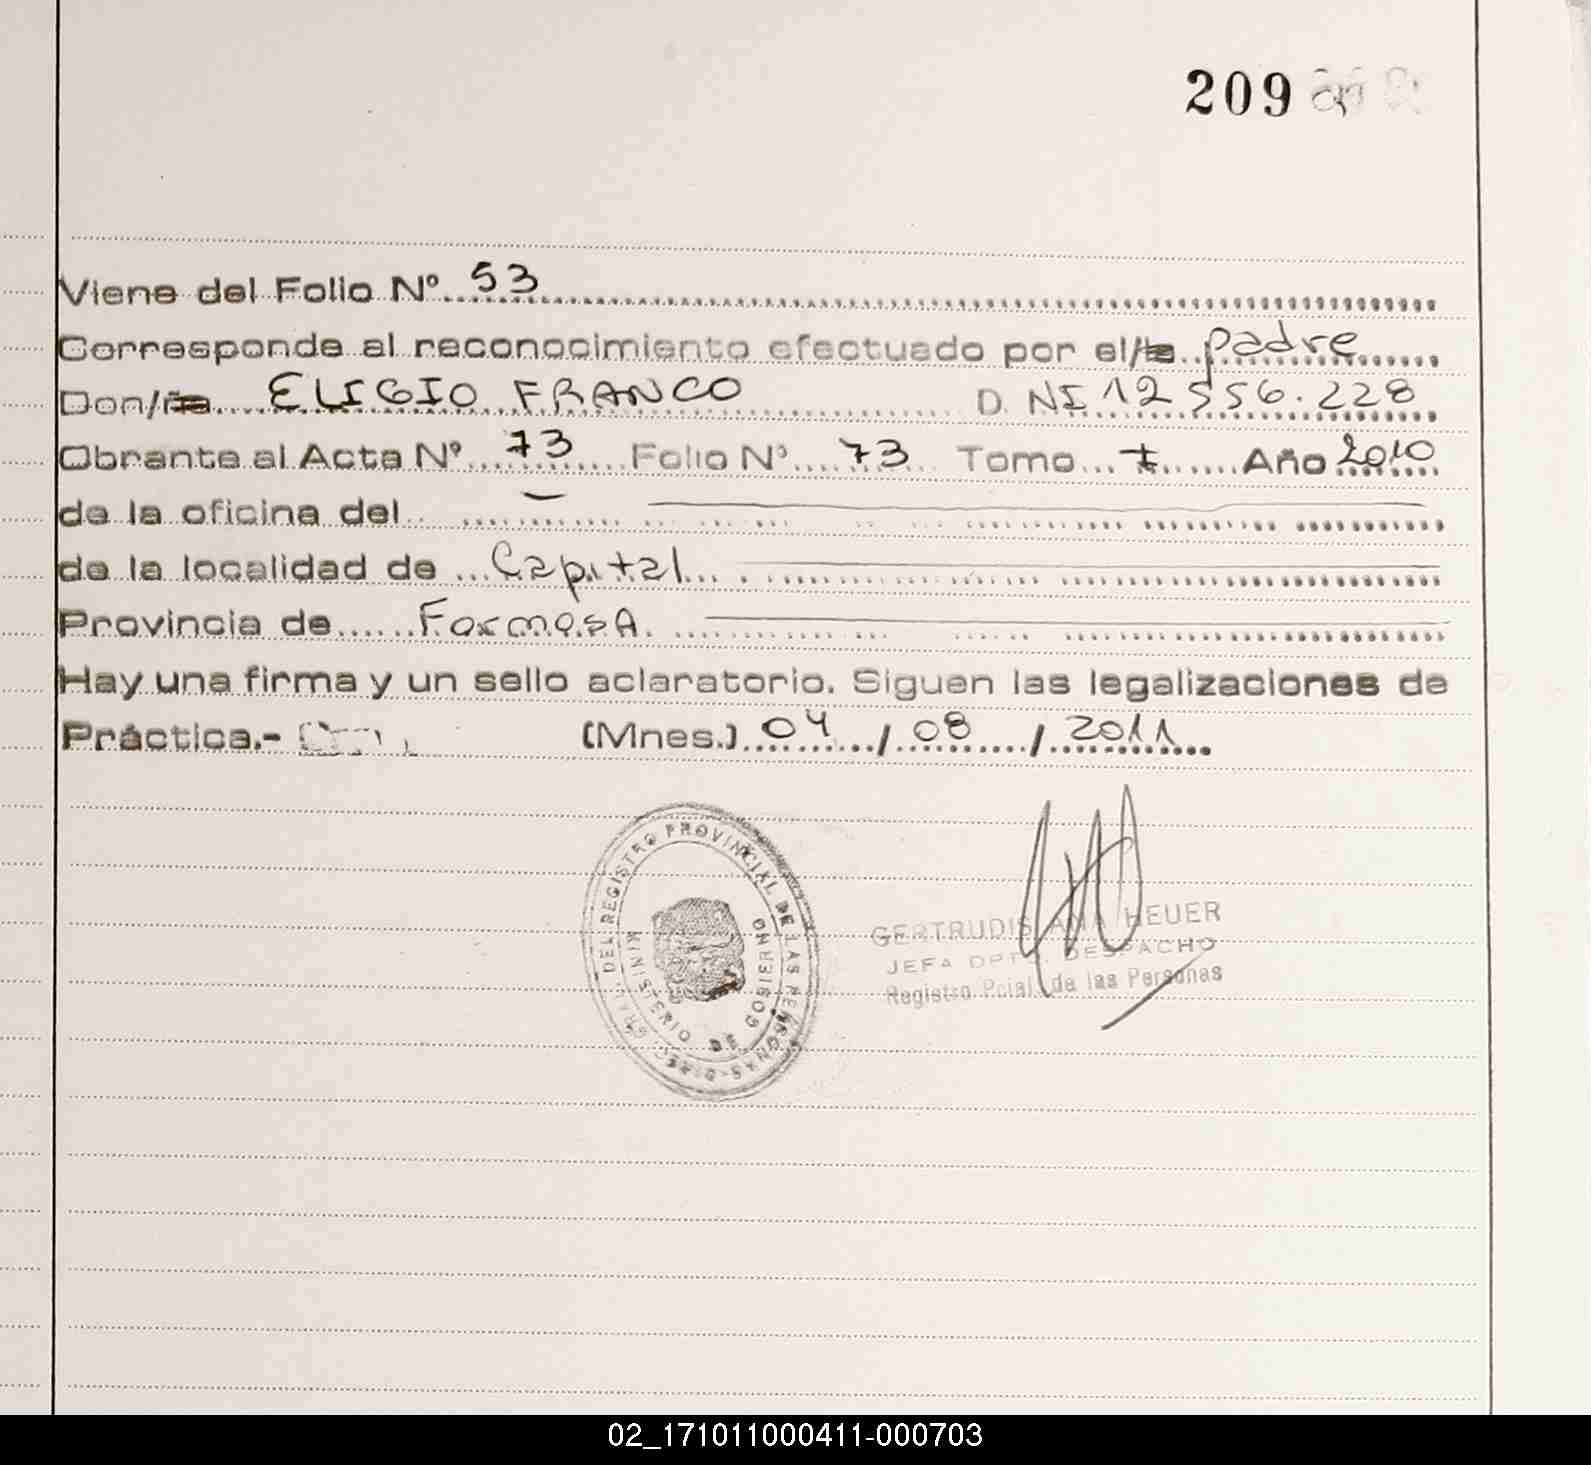 209
Viene del Folio Nº 53
Corresponde al reconocimiento efectuado por el/la padre
Don/ña ELIGIO FRANCO D. NI 12 556.228
Obrante al Acta Nº 73 Folio Nº 73 Tomo I Año 2010
de la oficina del —
de la localidad de Capital
Provincia de FormosA.
Hay una firma y un sello aclaratorio. Siguen las legalizaciones de
Práctica.- (Mnes.) 04 / 08 / 2011
DEL REGISTRO PROVINCIAL DE LAS PERSONAS - DIREC. GRAL.
MINISTERIO DE GOBIERNO
GERTRUDIS ANA HEUER
JEFA DPTO. DESPACHO
Registro Pcial. de las Personas
02_171011000411-000703